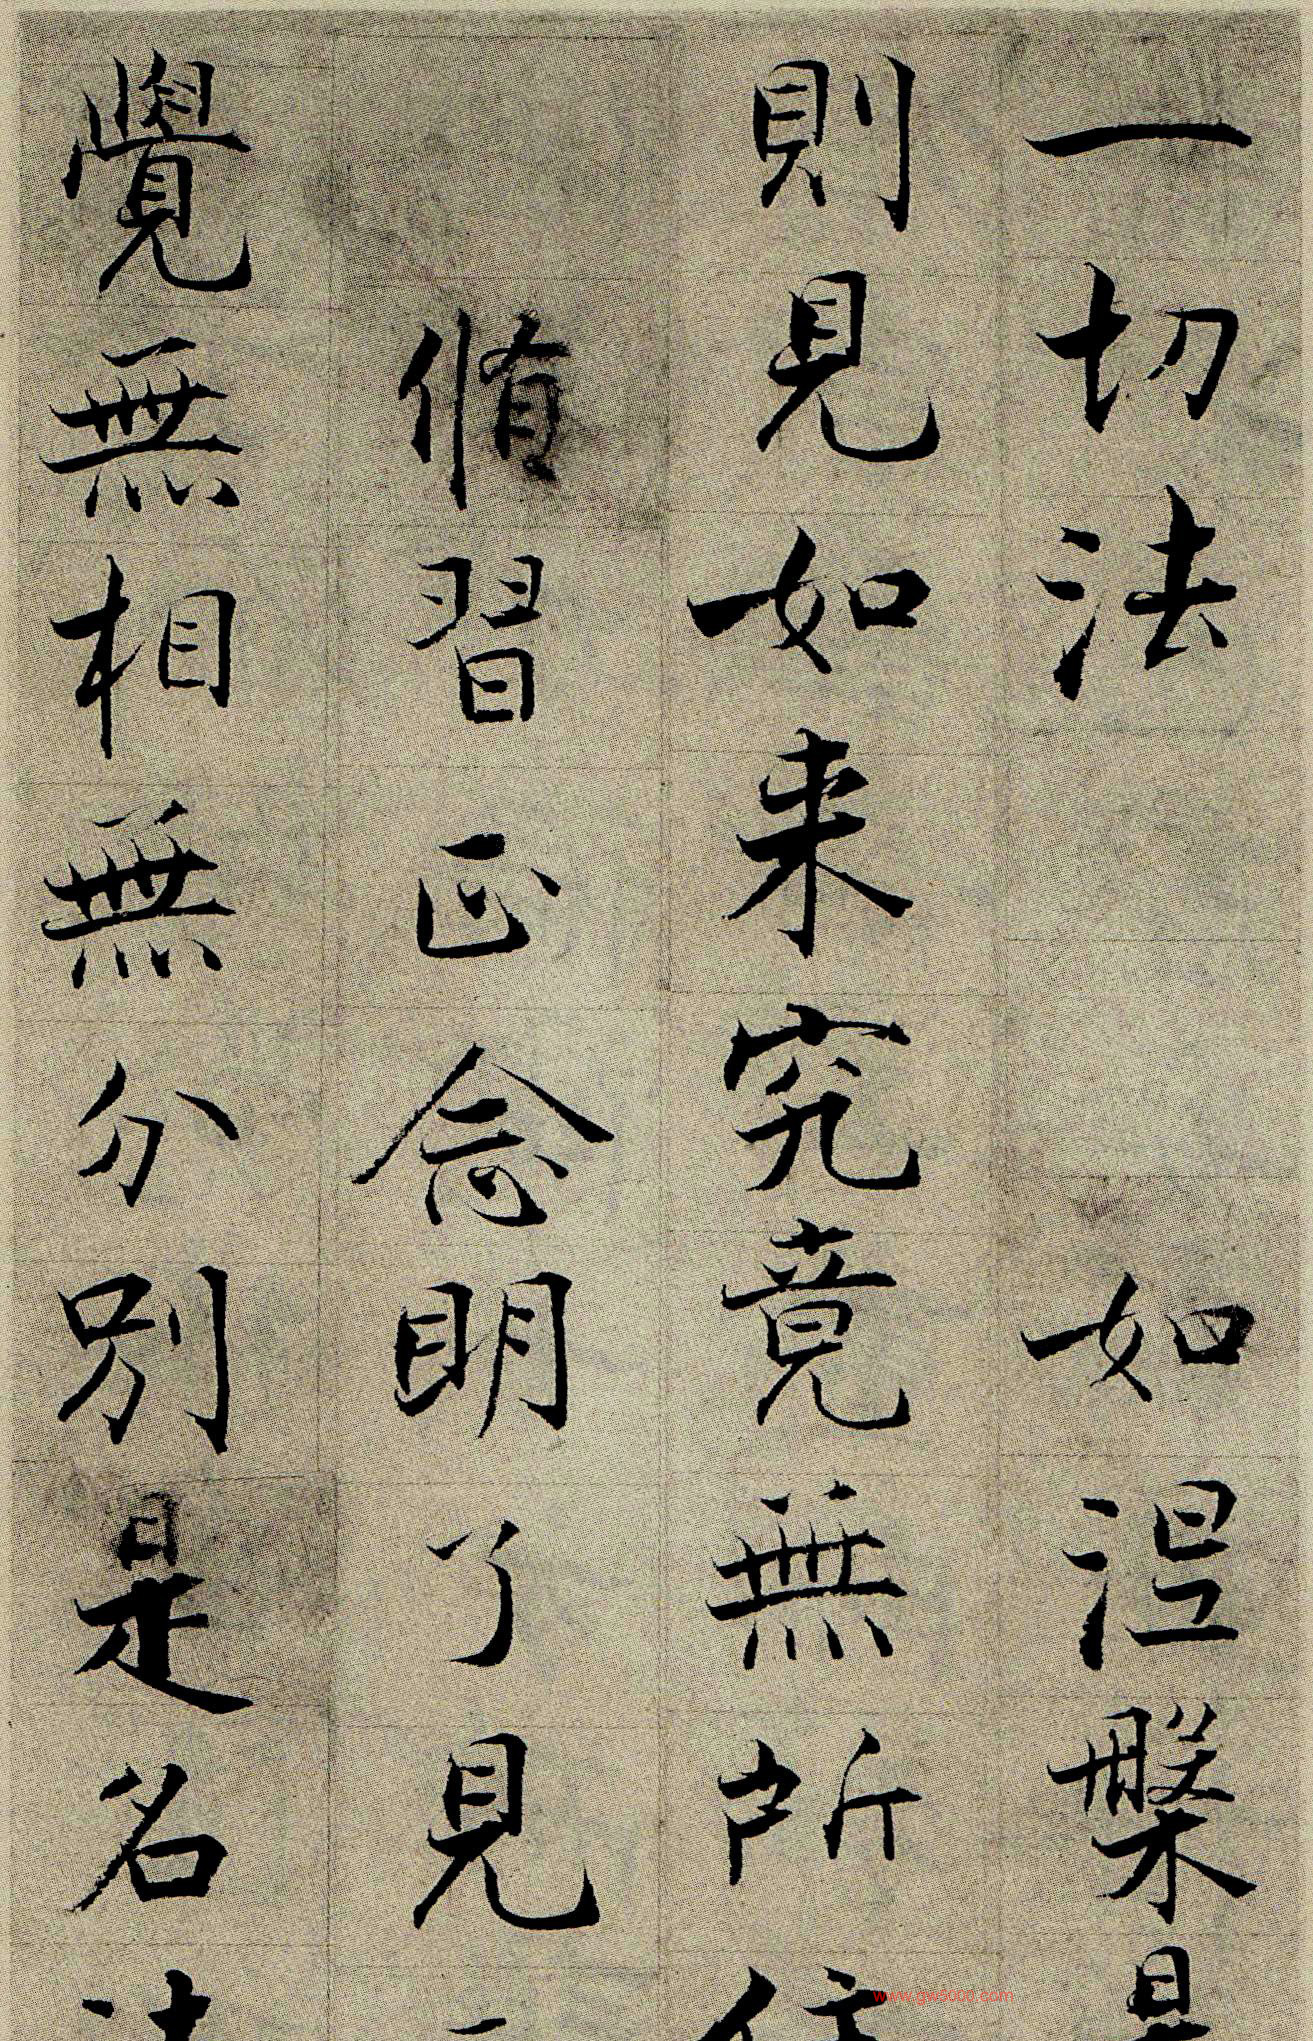 一切法 如涅槃是
則見如来究竟無所住
脩習正念明了見
覺無相無分別是名法
www.gw5000.com